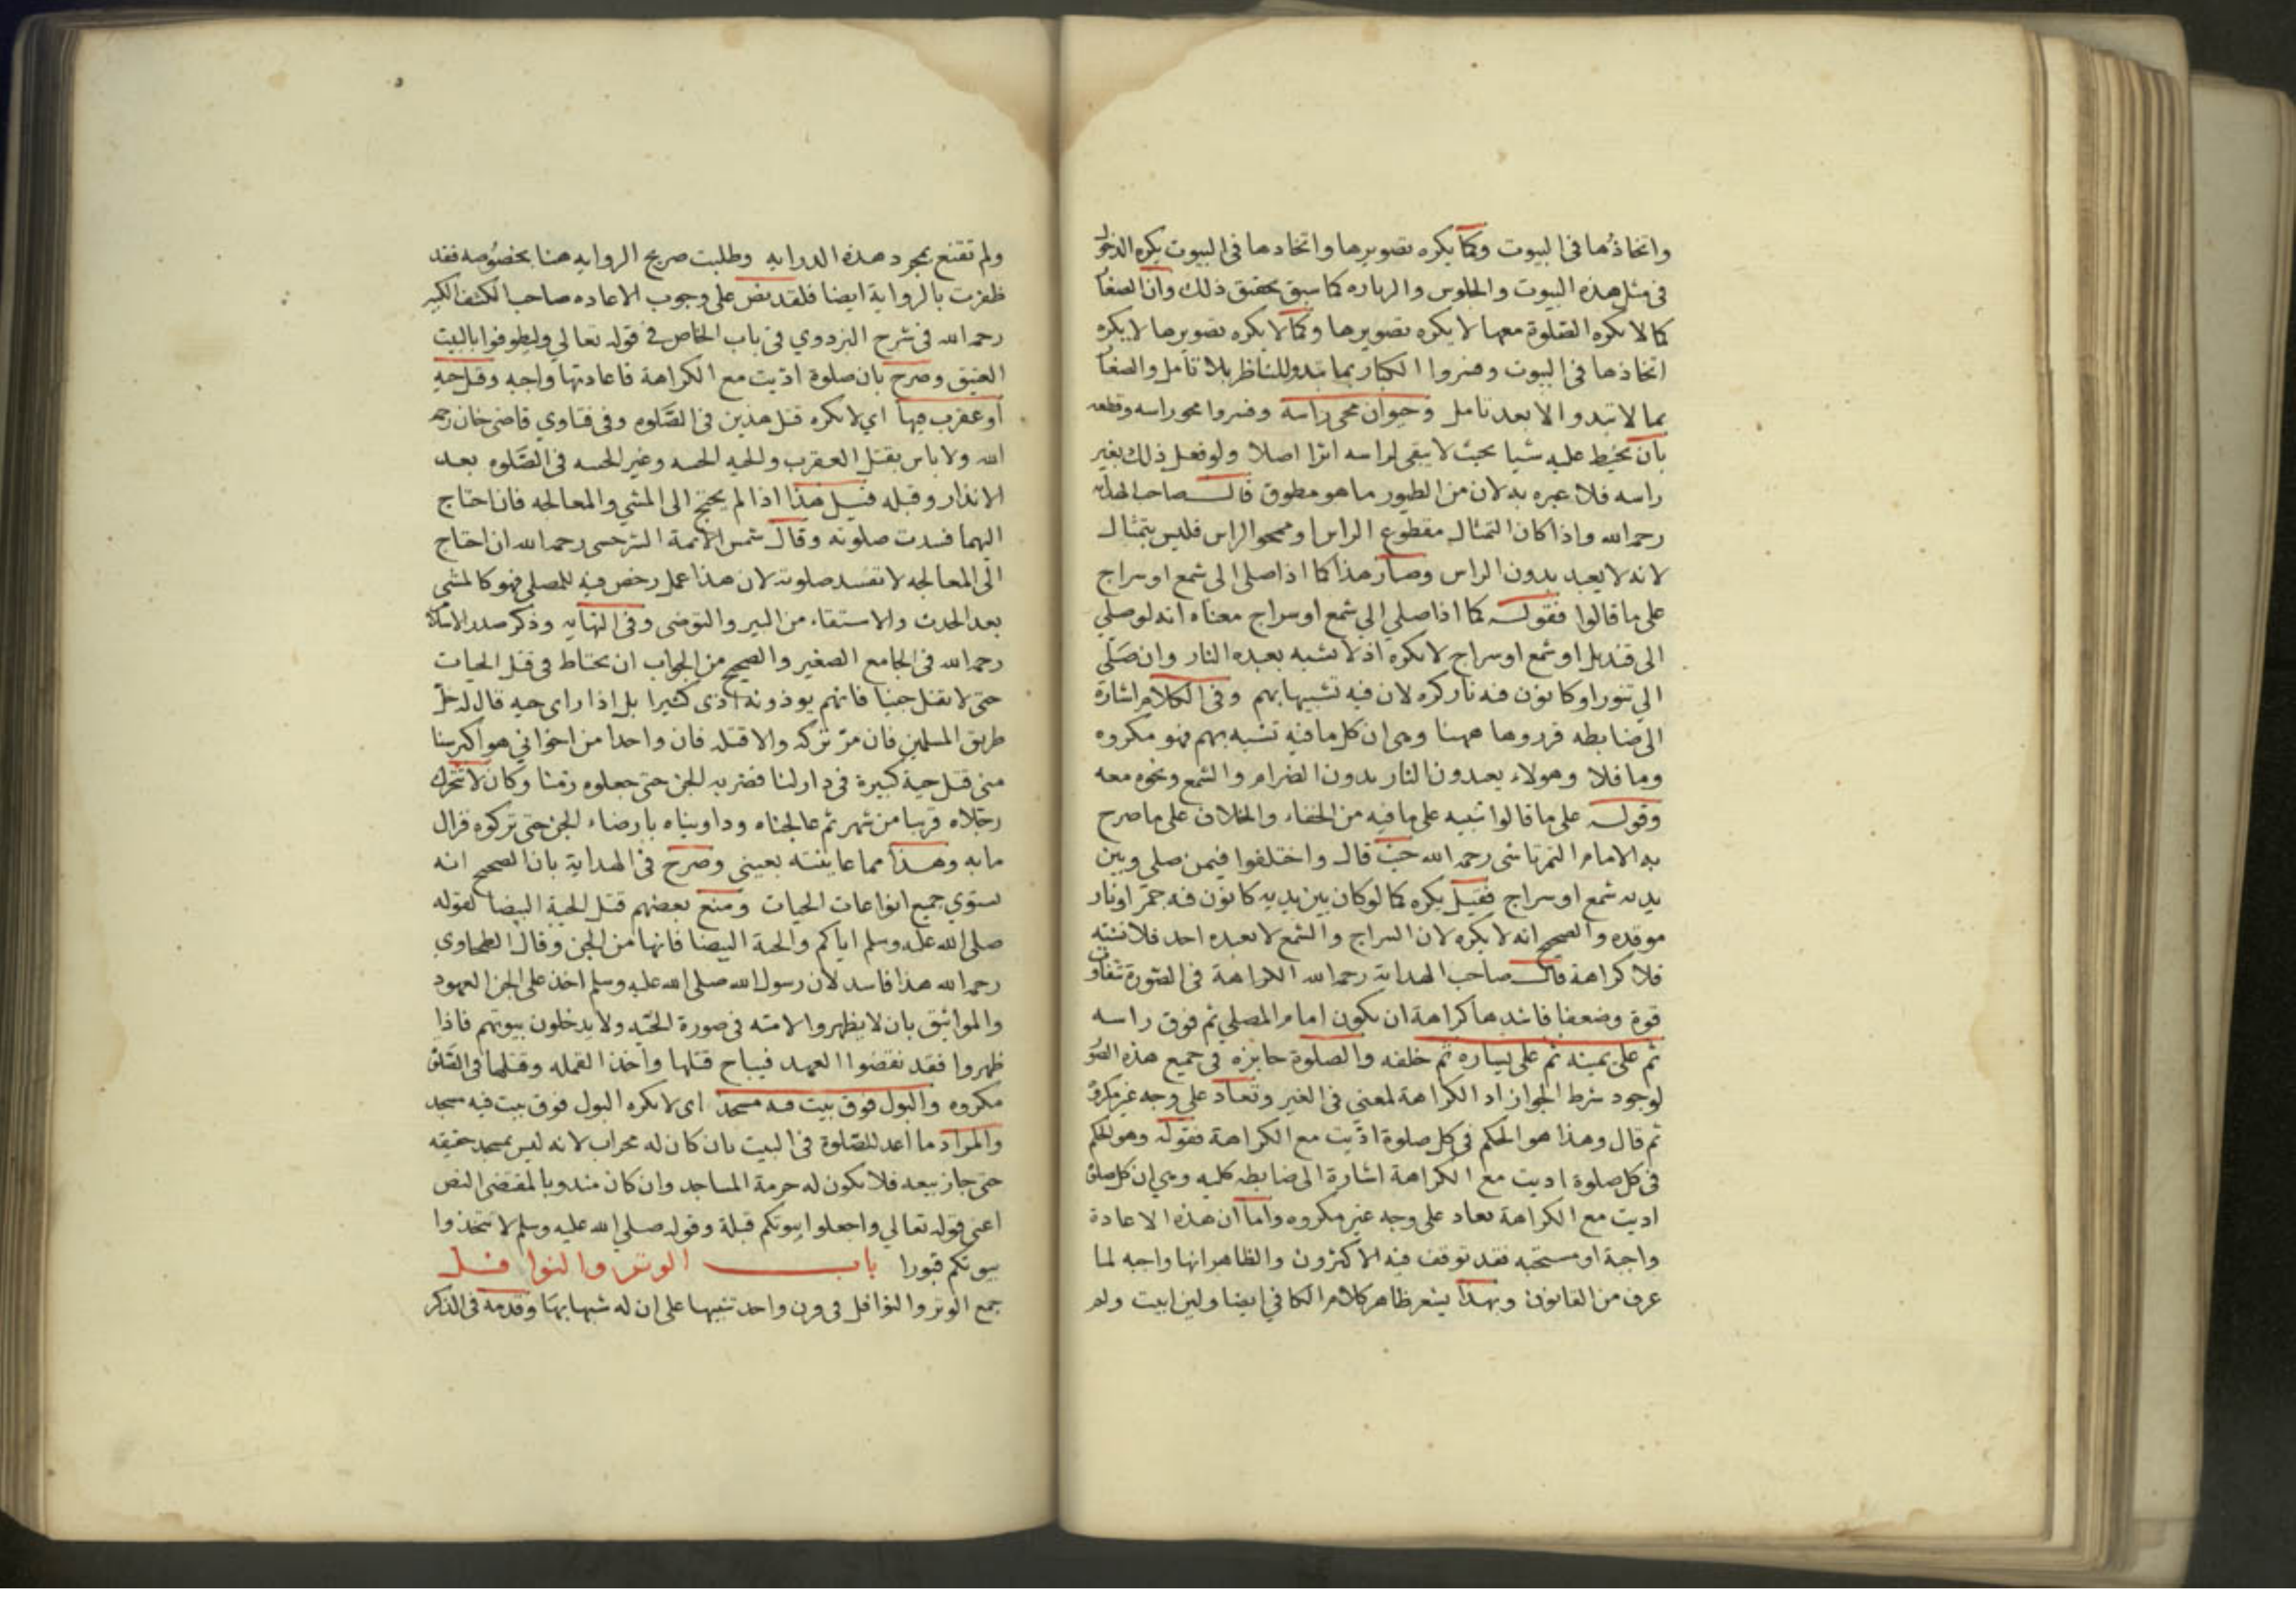 واتخاذها فى البيوت وكما يكره تصويرها واتخادها فى البيوت يكره الدخول
فى مثل هذه البيوت والجلوس والزياره كما سبق تحقيق ذلك وان الصغار
كما لا تكره الصلوة معها لا يكره تصويرها وكما لا يكره تصويرها لا يكره
اتخاذها فى البيوت وفسروا الكبار بما تبدو للناظر بلا تامل والصغار
بما لا تبدو الا بعد تامل وحيوان محى راسه وفسروا محو راسه وقطعه
بان يخيط عليه شيا بحيث لا يبقى لراسه اثرا اصلا ولو فعل ذلك بغير
راسه فلا عبره به لان من الطيور ما هو مطوق قال صاحب الهدايه
رحمه الله واذا كان التمثال مقطوع الراس او ممحو الراس فليس بتمثال
لانه لا يعبد بدون الراس وصار هذا كما اذا صلى الى شمع او سراج
على ما قالوا فقوله كما اذا صلي الي شمع او سراج معناه انه لو صلي
الى قنديل او شمع او سراج لا يكره اذ لا تشبه بعبده النار وان صلى
الي تنور او كانون فيه نار كره لان فيه تشبيها بهم وفى الكلام اشارة
الى ضابطه قرروها ههنا وهى ان كل ما فيه تشبه بهم فهو مكروه
وما فلا وهولاء يعبدون النار بدون الضرام والشمع ونحوه معه
وقوله على ما قالوا تنبيه على ما فيه من الخفاء والخلاف على ما صرح
به الامام التمرتاشى رحمه الله حيث قال واختلفوا فيمن صلى وبين
يديه شمع او سراج فقيل يكره كما لو كان بين يديه كانون فيه جمر او نار
موقده والصحيح انه لا يكره لان السراج والشمع لا يعبده احد فلا فتنه
فلا كراهة قال صاحب الهداية رحمه الله الكراهة فى الصورة تتفاوت
قوة وضعفا فاشدها كراهة ان يكون امام المصلي ثم فوق راسه
ثم على يمينه ثم على يساره ثم خلفه والصلوة جايزه فى جميع هذه الصور
لوجود شرط الجواز اد الكراهة لمعنى فى الغير وتعاد على وجه غير مكروه
ثم قال وهذا هو الحكم فى كل صلوة اديت مع الكراهة فقوله وهو الحكم
فى كل صلوة اديت مع الكراهة اشارة الى ضابطه كليه وهي ان كل صلوة
اديت مع الكراهة تعاد على وجه غير مكروه واما ان هذه الاعادة
واجبة او مستحبه فقد توقف فيه الاكثرون والظاهر انها واجبه لما
عرف من القانون وبهذا يشعر ظاهر كلام الكافي ايضا ولين ابيت ولم
ولم تقنع بمجرد هذه الدرايه وطلبت صريح الروايه هنا بخصوصه فقد
ظفرت بالرواية ايضا فلقد نص على وجوب الاعاده صاحب الكشف الكبير
رحمه الله فى شرح البزدوي فى باب الخاص فى قوله تعالي وليطوفوا بالبيت
العتيق وصرح بان صلوة اديت مع الكراهة فاعادتها واجبه وقتل حيه
او عقرب فيها اي لا يكره قتل هذين فى الصلوه وفى فتاوي قاضى خان رحمه
الله ولا باس بقتل العقرب والحيه الجنيه وغير الجنيه فى الصلوه بعد
الانذار وقبله قيل هذا اذا لم يحتج الى المشي والمعالجه فان احتاج
اليهما فسدت صلوته وقال شمس الائمة السرخسى رحمه الله ان احتاج
الى المعالجه لا تفسد صلوته لان هذا عمل رخص فيه للمصلى فهو كالمشى
بعد الحدث والاستقاء من البير والتوضى وفى النهايه وذكر صدر الاسلام
رحمه الله فى الجامع الصغير والصحيح من الجواب ان يحتاط فى قتل الحيات
حتى لا يقتل جنيا فانهم يوذونه اذى كثيرا بل اذا راى حيه قال له خل
طريق المسلمين فان مر تركه والا قتله فان واحدا من اخواني هو اكبر سنا
منى قتل حية كبيرة فى دار لنا فضربه الجن حتى جعلوه زمنا وكان لا تتحرك
رجلاه قريبا من شهر ثم عالجناه وداويناه بارضاء الجن حتى تركوه فزال
ما به وهذا مما عاينته بعينى وصرح فى الهداية بان الصحيح انه
يستوي جميع انواعات الحيات ومنع بعضهم قتل الحية البيضا لقوله
صلى الله عليه وسلم اياكم والحية البيضا فانها من الجن وقال الطحاوي
رحمه الله هذا فاسد لان رسول الله صلى الله عليه وسلم اخذ على الجن العهود
والمواثيق بان لا يظهروا لامته فى صورة الحيه ولا يدخلون بيوتهم فاذا
ظهروا فقد نقضوا العهد فيباح قتلها واخذ القمله وقتلها فى الصلوة
مكروه والبول فوق بيت فيه مسجد اى لا يكره البول فوق بيت فيه مسجد
والمراد ما اعد للصلوة فى البيت بان كان له محراب لانه ليس بمسجد حقيقه
حتى جاز بيعه فلا يكون له حرمة المساجد وان كان مندوبا لمقتضى النص
اعنى قوله تعالي واجعلوا بيوتكم قبلة وقوله صلي الله عليه وسلم لا تتخذوا
بيوتكم قبورا باب الوتر والنوافل
جمع الوتر والنوافل فى قرن واحد تنبيها على ان له شبها بها وقدمه فى الذكر